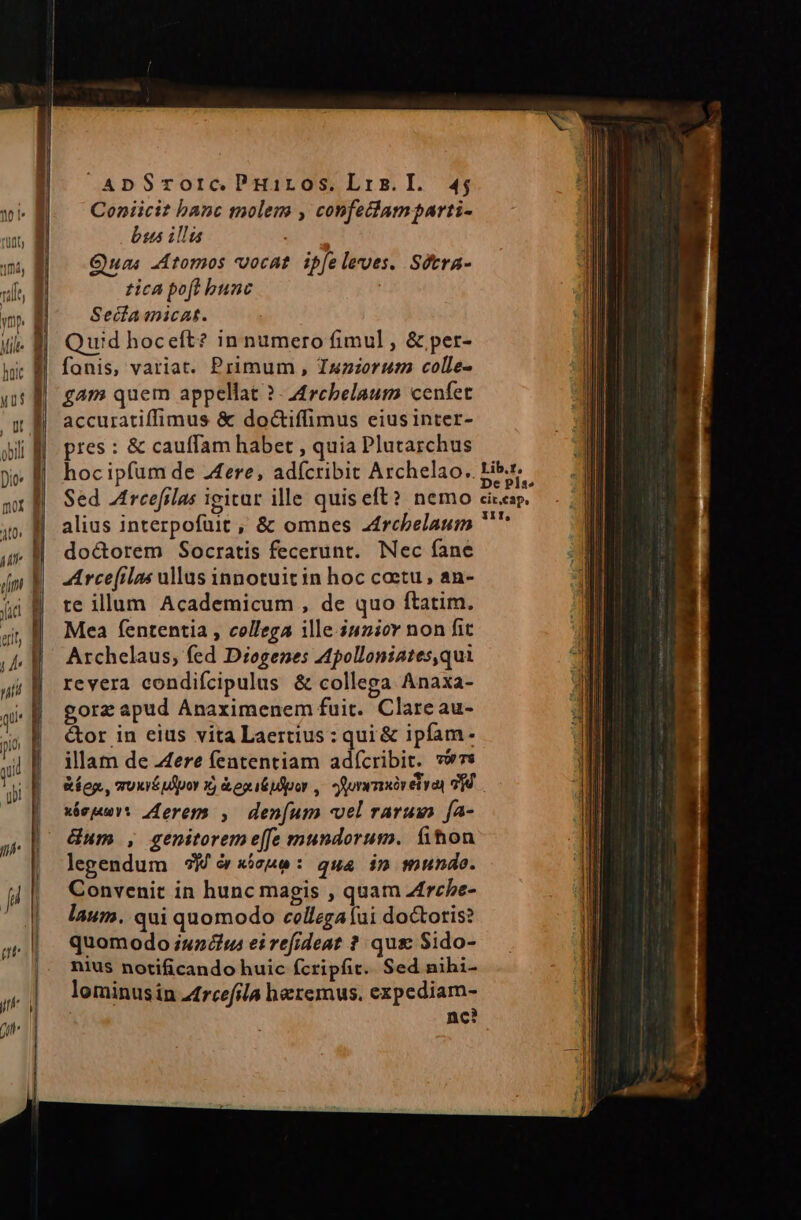 AD STOIC. PHILOS. LIB. I. 45
Coniicit hanc molem , confectam parti-
bus illis
Quas Atomos vocat ipse leves. Socra-
tica post hunc
Secta micat.
Quid hoc est? in numero simul, & per-
sonis, variat. Primum, Iuniorum colle-
gam quem appellat? Archelaum censet
accuratissimus & doctissimus eius inter-
pres: & caussam habet, quia Plutarchus
hoc ipsum de Aere, adscribit Archelao.
Lib. 1.
De Pla.
cit. cap.
III.
Sed Arcesilas igitur ille quis est? nemo
alius interposuit, & omnes Archelaum
doctorem Socratis fecerunt. Nec sane
Arcesilas ullus innotuit in hoc cœtu, an-
te illum Academicum, de quo statim.
Mea sententia, collega ille iunior non sit
Archelaus, sed Diogenes Apolloniates, qui
revera condiscipulus & collega Anaxa-
goræ apud Anaximenem fuit. Clare au-
ctor in eius vita Laertius: qui & ipsam-
illam de Aere sententiam adscribit.
κόσμων: Aerem , densum vel rarum fa-
ctum , genitorem esse mundorum. si non
legendum τῶ ἐν κόσμῳ: qua in mundo.
Convenit in hunc magis, quam Arche-
laum. qui quomodo collega sui doctoris?
quomodo iunctus ei resideat? quæ Sido-
nius notificando huic scripsit. Sed nihi-
lominus in Arcesila hæremus. expediam-
ne?